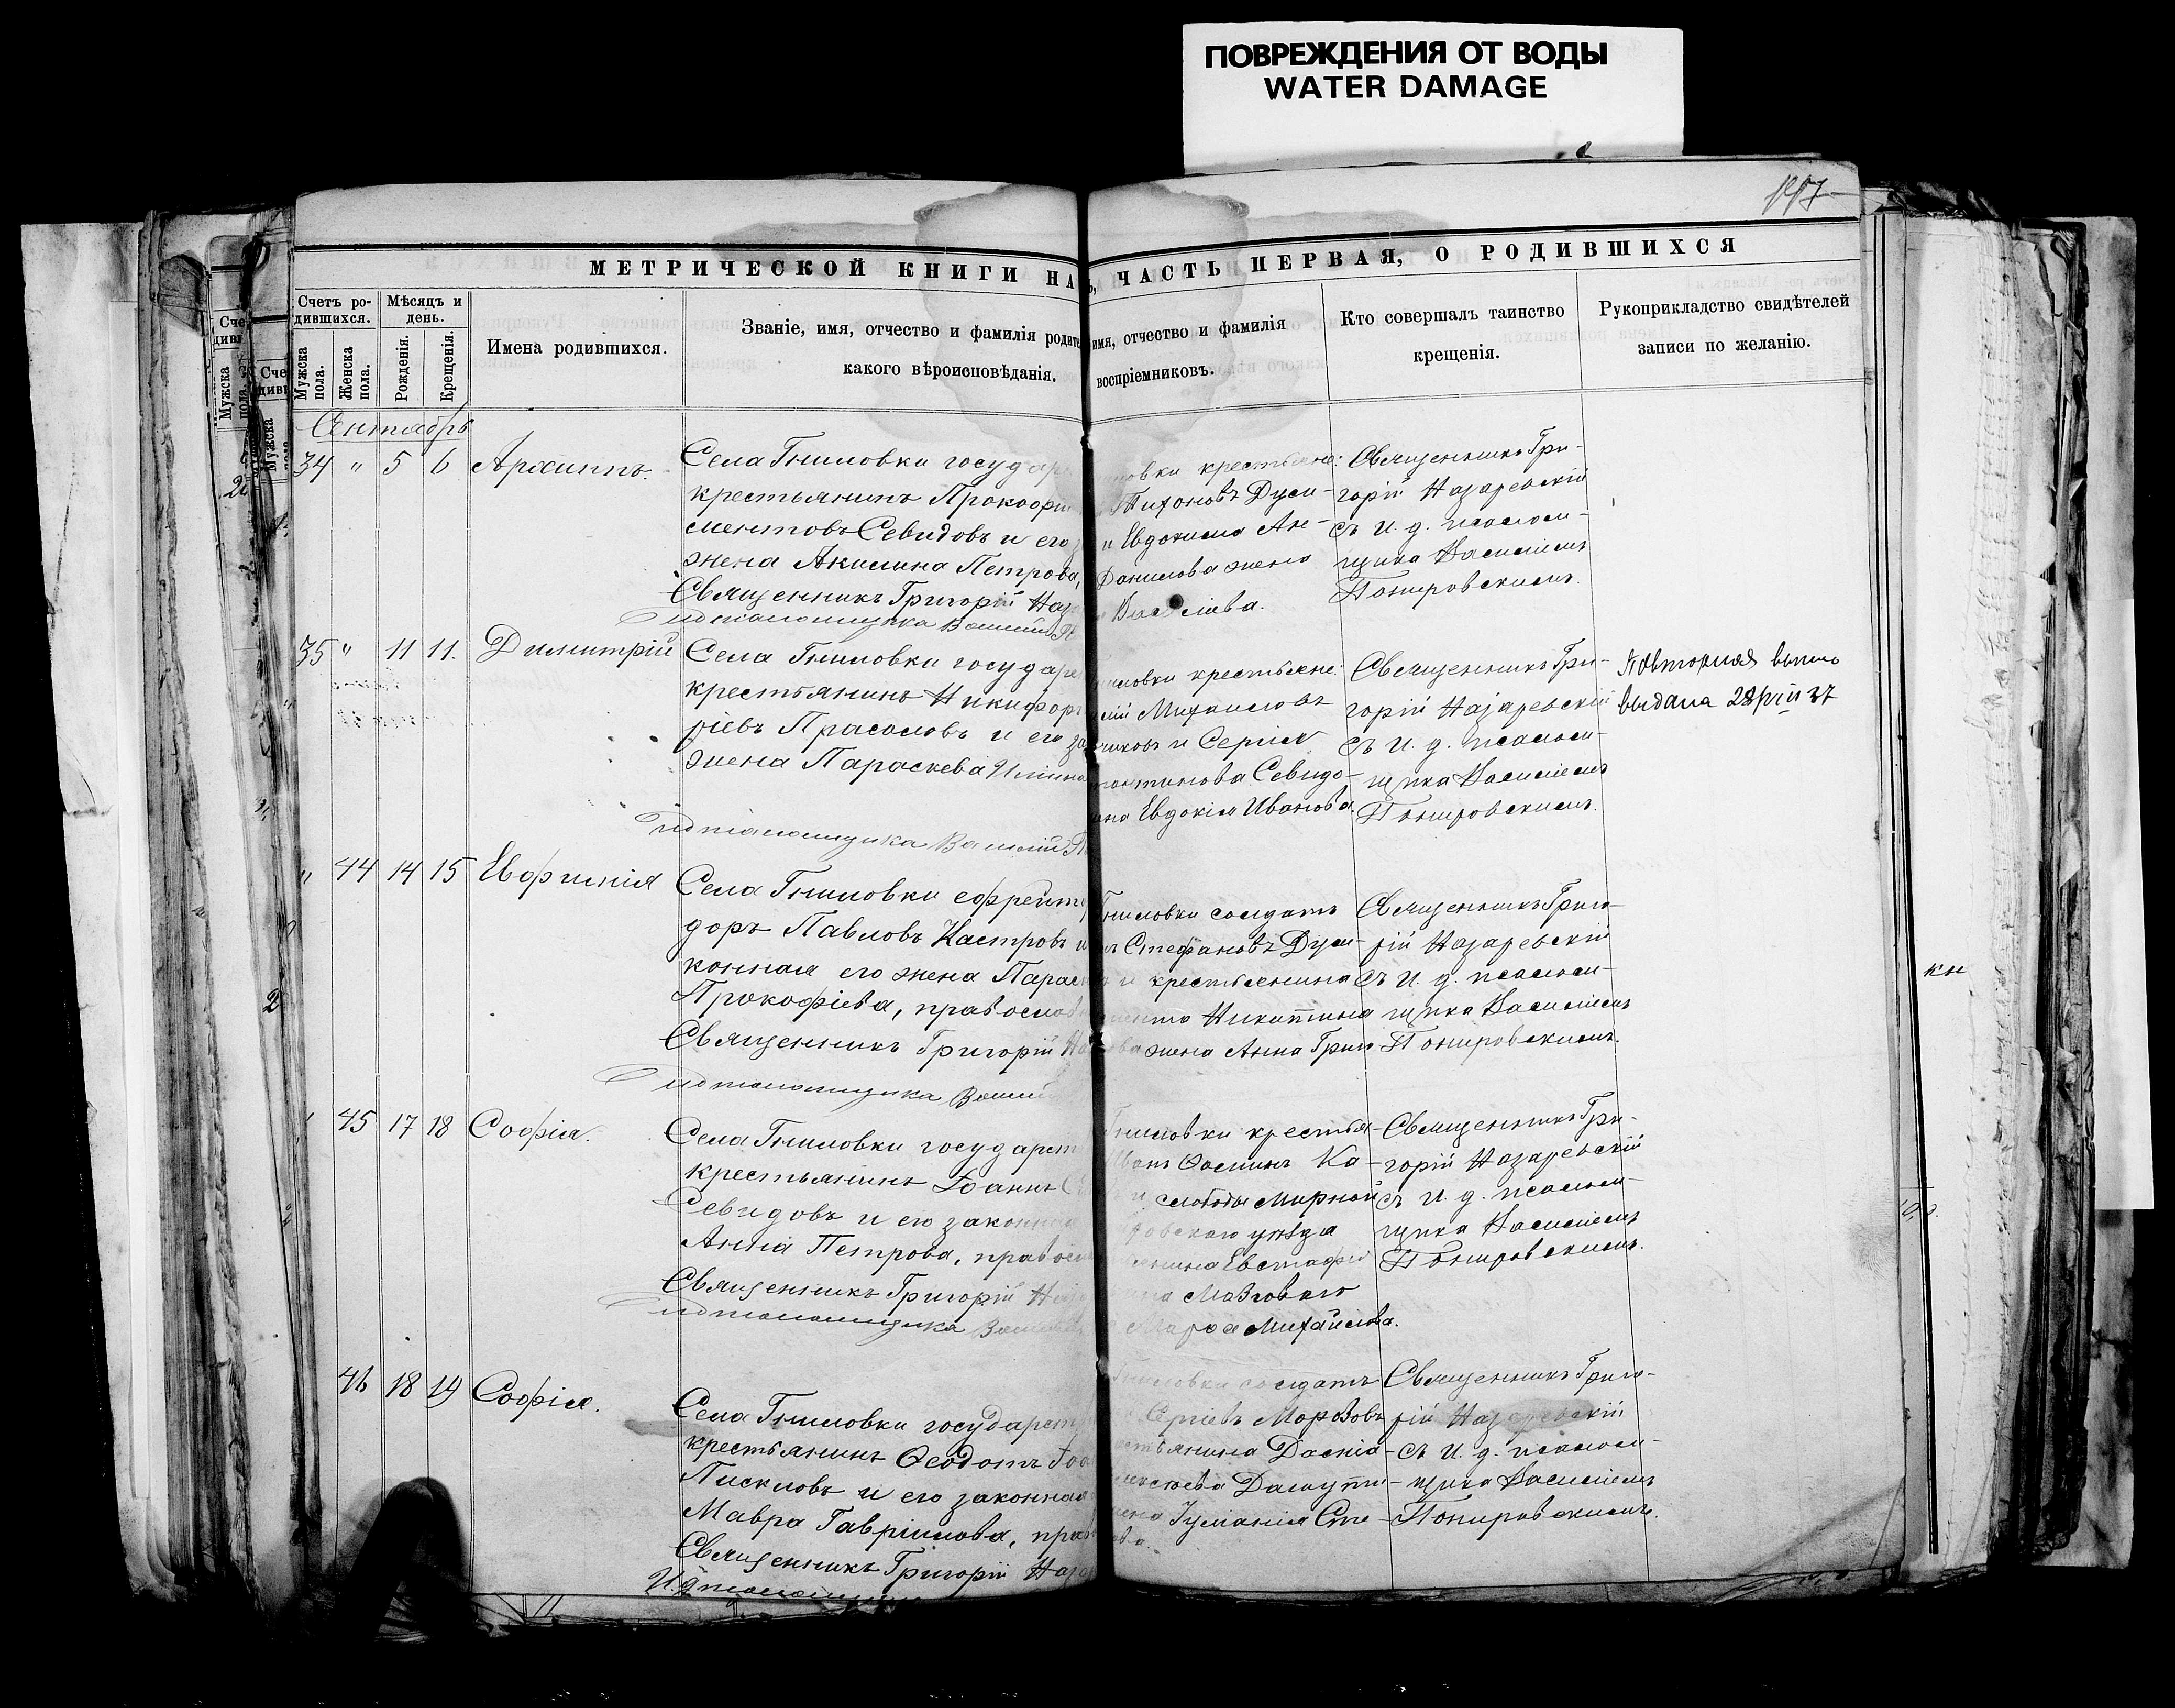 ПОВРЕЖДЕНИЯ ОТ ВОДЫ
WATER DAMAGE
МЕТРИЧЕСКОЙ КНИГИ НА
ЧАСТЬ ПЕРВАЯ, О РОДИВШИХСЯ
Счетъ ро-
дившихся.
Мужска пола.
Женска пола.
Мѣсяцъ и
день.
Рожденія.
Крещенія.
Имена родившихся.
Званіе, имя, отчество и фамилія родите
какого вѣроисповѣданія.
имя, отчество и фамилія
воспріемниковъ.
Кто совершалъ таинство
крещенія.
Рукоприкладство свидѣтелей
записи по желанію.
Сентябрь
34 " 5 6 Архиппъ.
Села Гниловки государ
крестьянинъ Прокофі
ментовъ Севидовъ и его з
жена Акилина Петрова,
Священникъ Григорій Наза
овки крестьяне:
Тихоновъ Дули-
и Евдокима Ан-
Данилова жена
Васслива.
Священникъ Гри-
горій Назаревскій
съ и. д. псаломщ-
щика Василіемъ
Понировскимъ.
35 " 11 11. Димитрій
Села Гниловки государ
крестьянинъ Никифоръ
ріевъ Прасоловъ и его за
жена Параскева Ильина
псаломщика Василій
ловки крестьяне:
Михаиловъ
чиковъ и Сергія
тантинова Севидо-
ена Евдокія Иванова.
Священникъ Гри-
горій Назаревскій
съ и. д. псалом-
щика Василіемъ
Понировскимъ.
Повторная выпис
выдана
" 44 14 15 Евфимія
Села Гниловки ефрейт
доръ Павловъ Кастровъ и
конная его жена Параск
Прокофіева, православ
Священникъ Григорій На
псаломщика Василій
Гниловки солдатъ
Стефановъ Дули-
и крестьянина
Никитина
ова жена Анна Григо
Священникъ Григо-
рій Назаревскій
съ и. д. псалом-
щика Василіемъ
Понировскимъ.
45 17 18 Софія.
Села Гниловки государст
крестьянинъ Іоаннъ
Севидовъ и его законная
Анна Петрова, правосл
Священникъ Григорій Наз
псаломщика Василій
Гниловки крестья-
Ка-
слободы Мирной
овскаго уѣзда
янина Евстафі
Мазговаго
Марфа Михайлова.
Священникъ Гри-
горій Назаревскій
съ и. д. псалом-
щика Василіемъ
Понировскимъ.
46 18 19 Софія.
Села Гниловки государст
крестьянинъ Ѳеодотъ Іоа
Пискловъ и его законная
Мавра Гавріилова, прав
Священникъ Григорій Наза
Гниловки солдатъ
Сергіевъ Морозовъ
стьянина Даніа-
лексѣева Дашути-
жена Іуліанія Сте-
ова.
Священникъ Григо-
рій Назаревскій
съ и. д. псалом-
щика Василіемъ
Понировскимъ.